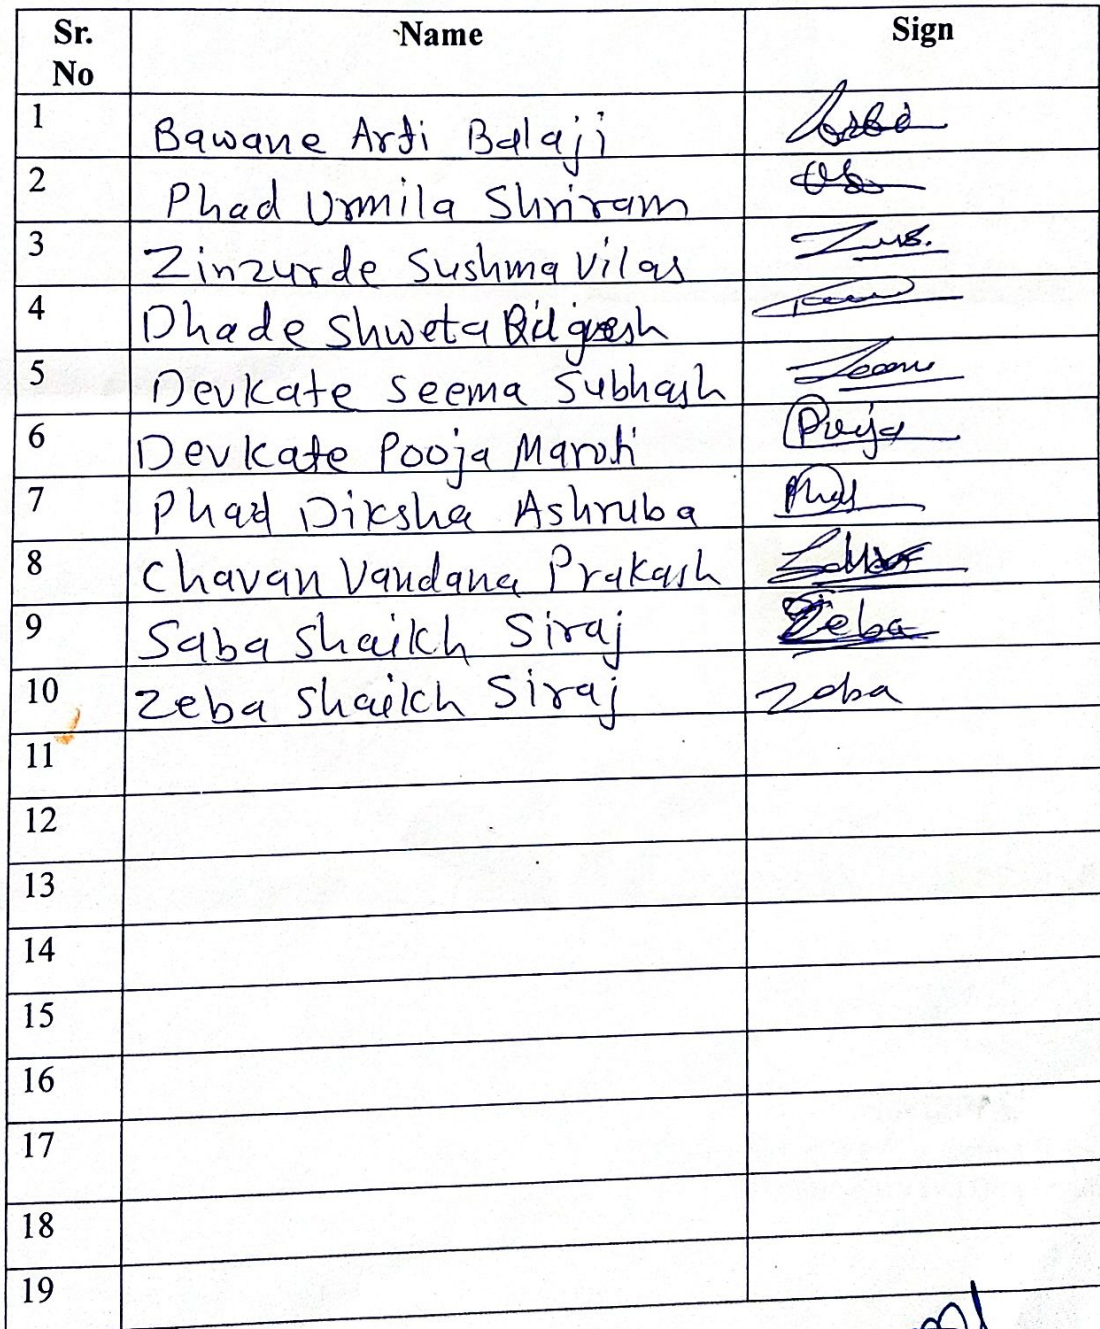 Sr. No Name Sign
1 Bawane Arti Balaji
2 Phad Urmila Shriram
3 Zinzurde Sushma Vilas Zus.
4 Dhade Shweta
5 Devkate Seema Subhash
6 Devkate Pooja Maroti Pooja
7 Phad Diksha Ashruba Phad
8 Chavan Vandana Prakash
9 Saba Shaikh Siraj Zeba
10 Zeba Shaikh Siraj Zeba
11
12
13
14
15
16
17
18
19